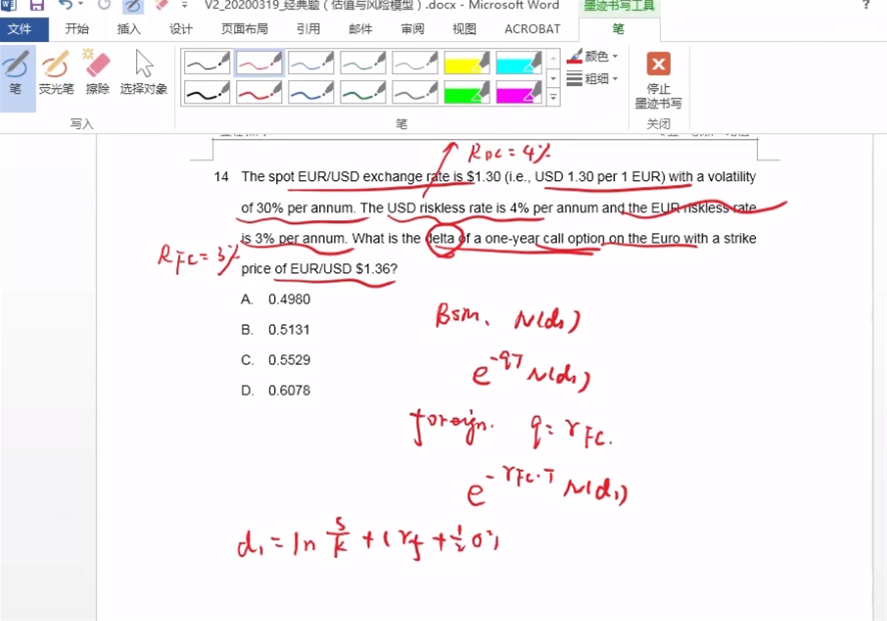 V2_20200319_经典题（估值与风险模型）.docx - Microsoft Word
墨迹书写工具
?
文件 开始 插入 设计 页面布局 引用 邮件 审阅 视图 ACROBAT 笔
笔 荧光笔 擦除 选择对象
颜色
粗细
停止
墨迹书写
写入 笔 关闭
R DC = 4%
14 The spot EUR/USD exchange rate is $1.30 (i.e., USD 1.30 per 1 EUR) with a volatility
of 30% per annum. The USD riskless rate is 4% per annum and the EUR riskless rate
is 3% per annum. What is the delta of a one-year call option on the Euro with a strike
R FC = 3%
price of EUR/USD $1.36?
A. 0.4980
B. 0.5131
C. 0.5529
D. 0.6078
BSM. N(d₁)
e^-qT N(d₁)
foreign. q = r FC.
e^-rFC·T N(d₁)
d₁ = ln S/K + (rf + 1/2 σ²)